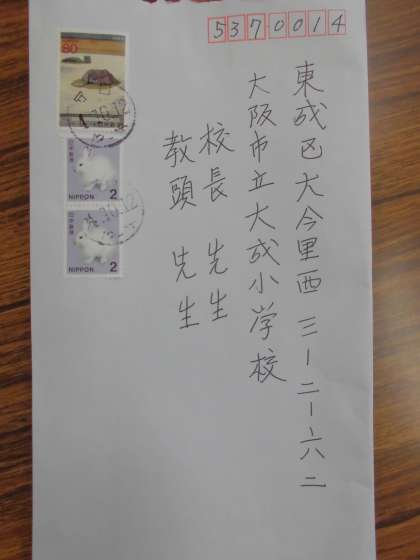 5370014
東成区大今里西三-二-六二
大阪市立大成小学校
校長 先生
教頭 先生
80
日本郵便
NIPPON 2
日本郵便
NIPPON 2